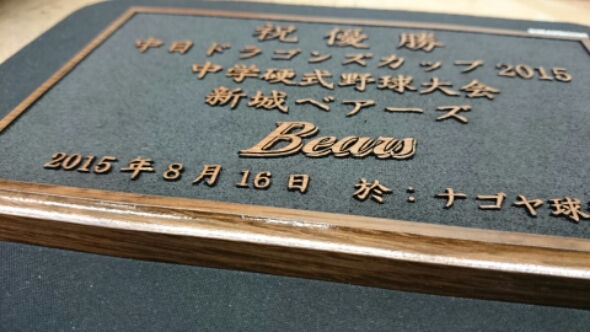 祝優勝
中日ドラゴンズカップ2015
中学硬式野球大会
新城ベアーズ
Bears
2015年8月16日 於：ナゴヤ球